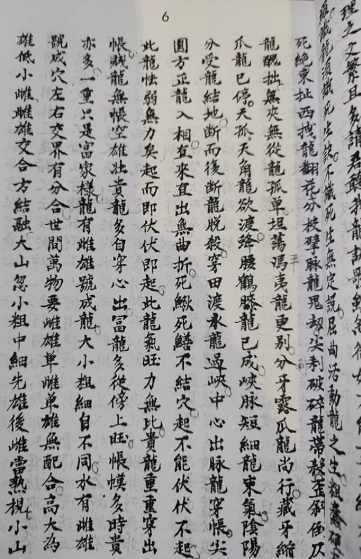 6
理之文
龍須識死生訣不識死生無定說屈曲活動龍之生粗蠢
死絕東扯西拽龍翻花分枝劈脉龍鬼刼尖利破碎龍帶殺歪斜
龍醜拙無夾無從龍孤單坦蕩馮夷龍更別分牙露爪龍尚行藏牙縮
爪龍已停天孤天角龍欲渡峰腰鶴膝龍已成峽脉短細龍束氣陰陽
分受龍結地斷而後斷龍脫殺穿田渡水龍過峽中心出脉龍穿帳尖
圓方正龍入相直來直出無曲折死鰍死鱔不結穴起不能伏伏不起
此龍怯弱無力矣起而即伏伏即起此龍氣旺力無比貴龍重重穿出
帳賤龍無帳空雄壯貴龍多自穿心出富龍多從傍上旺帳幙多時貴
亦多一重只是富家樣龍有雌雄號成龍大小粗細自不同水有雌雄
號成穴左右交界有分合世間萬物要雌雄單雌單雄無配合高大為
雄低小雌雌雄交合方結融大山忽小粗中細先雄後雌當熟視小山